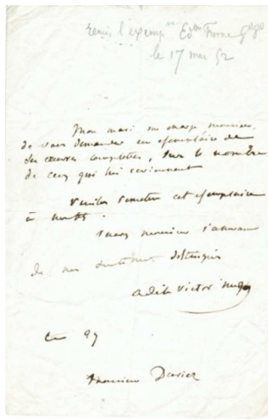 remis l'exemp re Edon Furne
le 17 mai 52
Mon mari me charge monsieur,
de vous demander un exemplaire de
ses œuvres complettes, sur le nombre
de ceux qui lui reviennent
Veuillez remettre cet exemplaire
à
Recevez monsieur l'assurance
de mes sentiments distingués
adèle Victor hugo
Ce 27
Monsieur